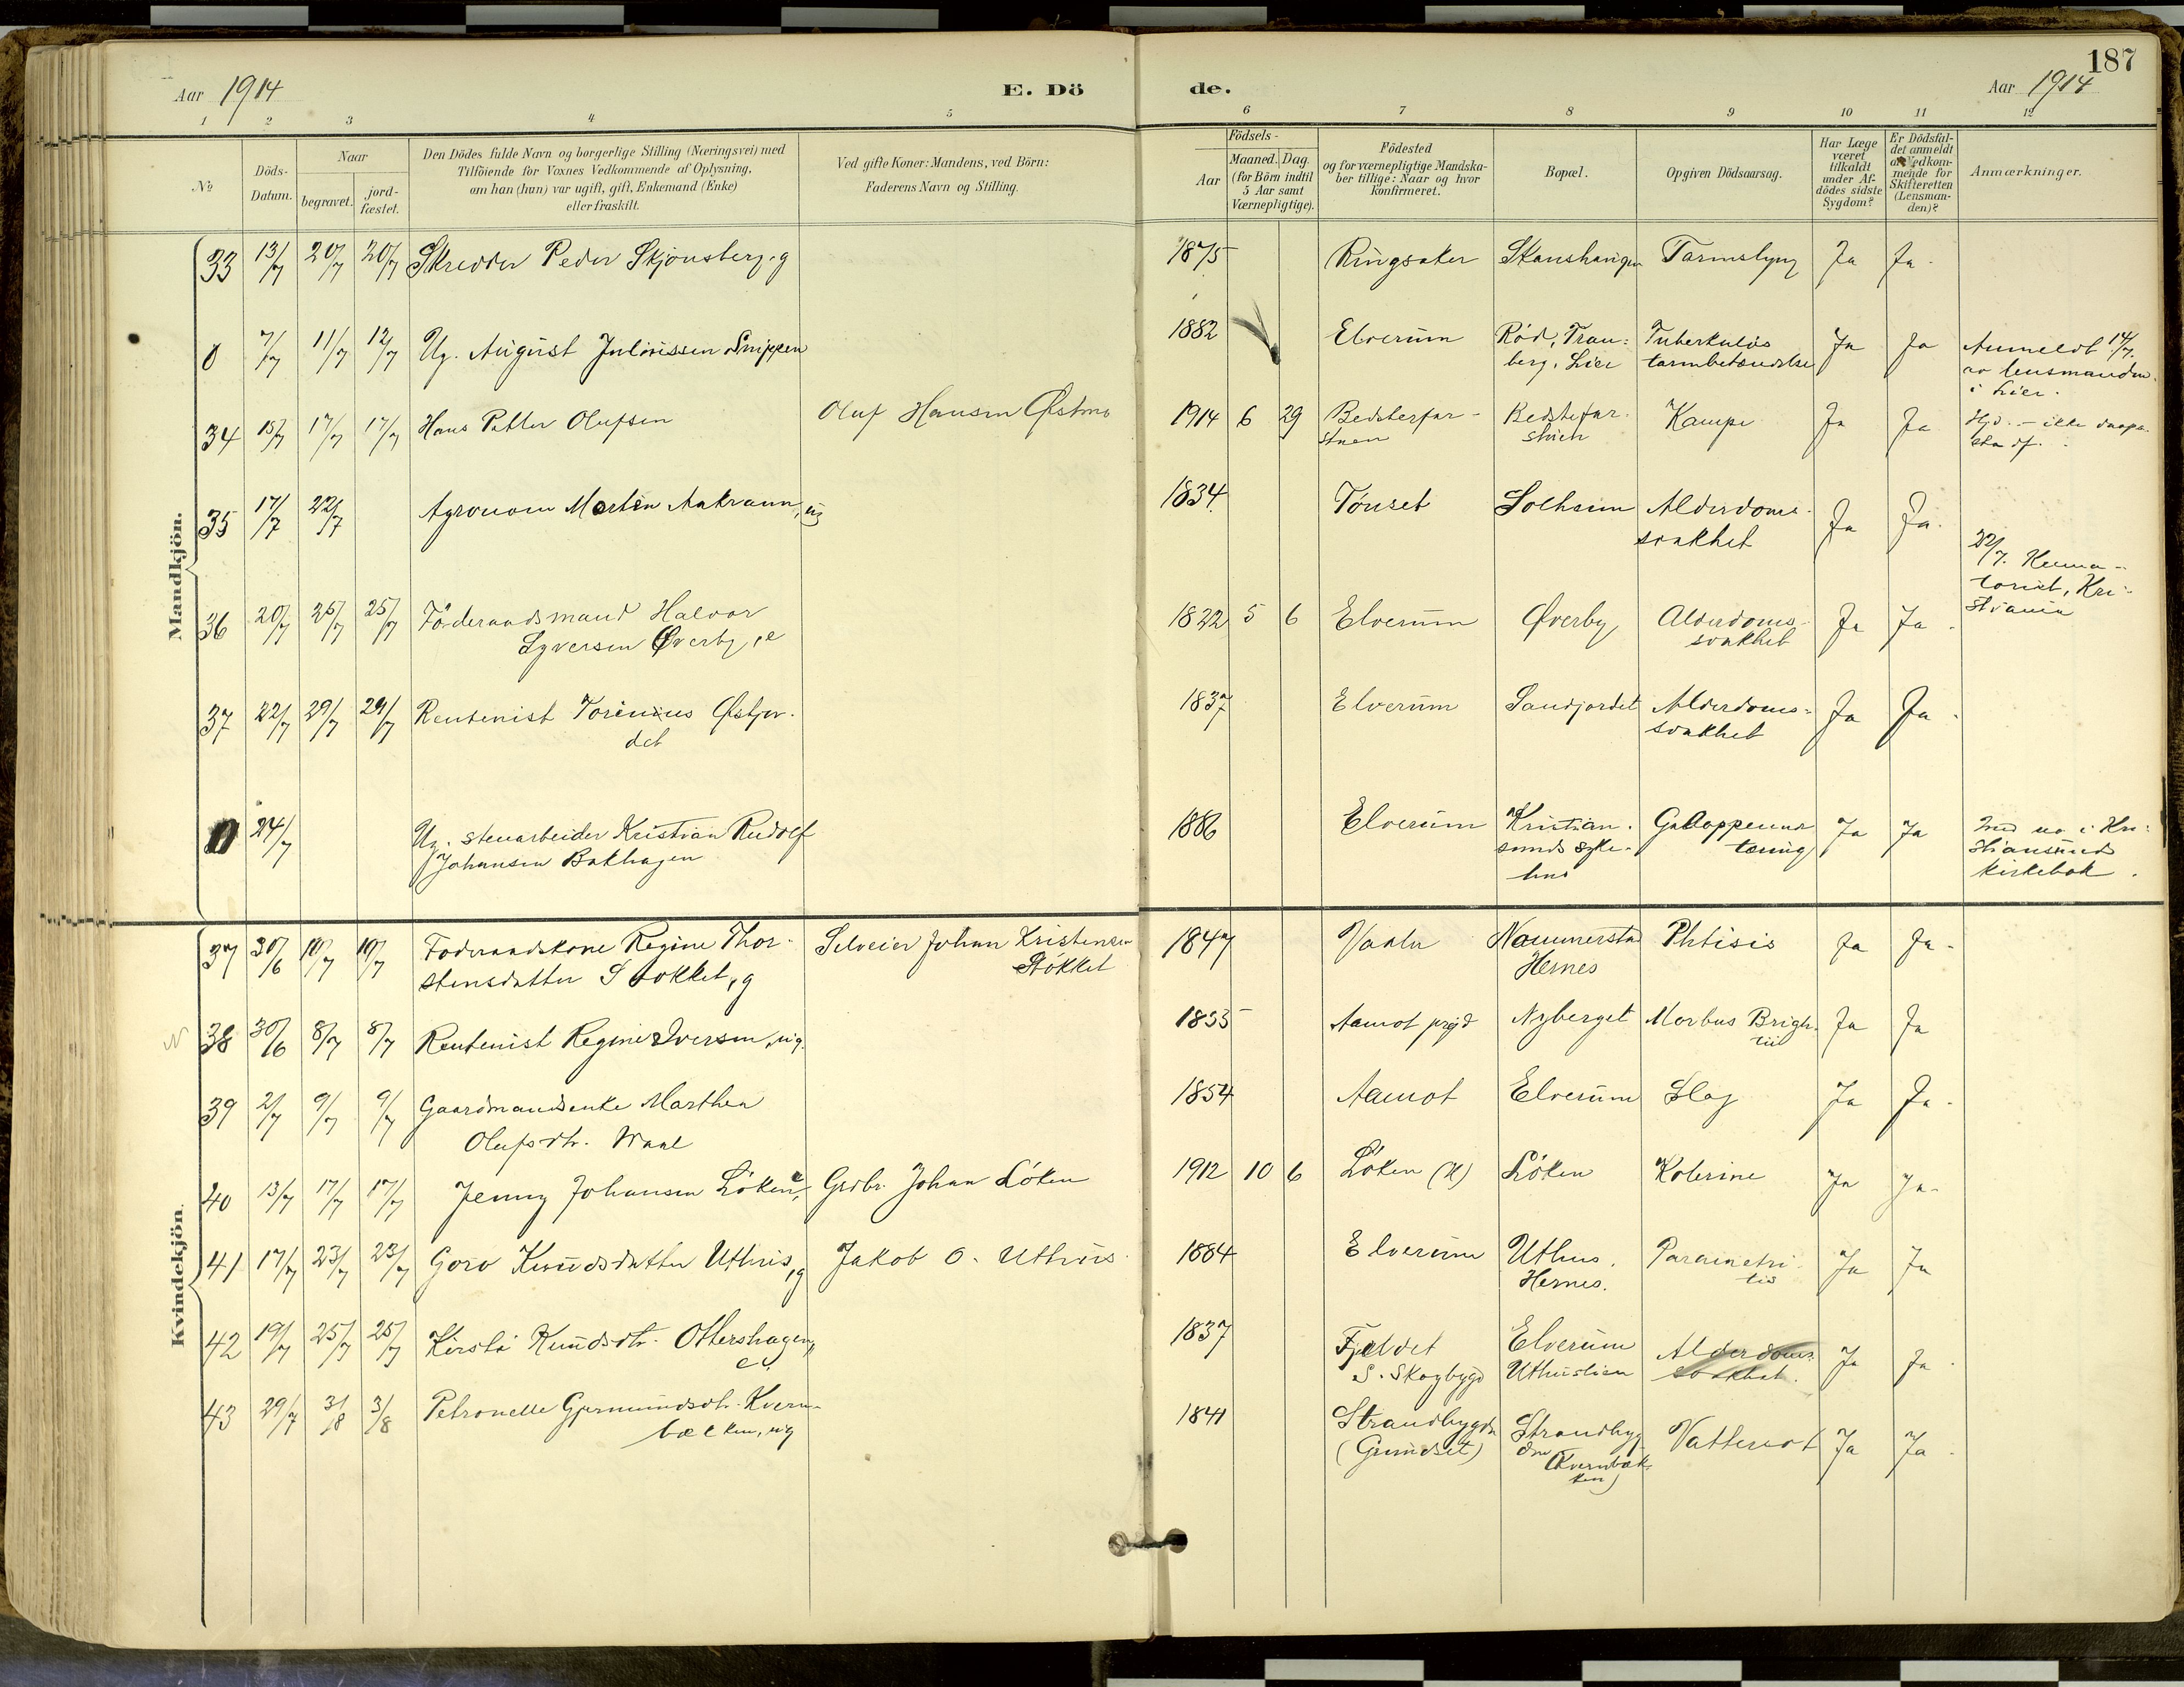 187
Aar 1914
E. Dö
de.
Aar 1914
1 2 3 4 5 6 7 8 9 10 11 12
No
Döds-Datum.
Naar
begravet.
jord-fæstet.
Den Dödes fulde Navn og borgerlige Stilling (Næringsvei) med
Tilföiende for Voxnes Vedkommende af Oplysning,
om han (hun) var ugift, gift, Enkemand (Enke)
eller fraskilt.
Ved gifte Koner: Mandens, ved Börn:
Faderens Navn og Stilling.
Födsels-
Aar
Maaned. Dag.
(for Börn indtil
5 Aar samt
Værnepligtige).
Födested
og for værnepligtige Mandska-
ber tillige: Naar og hvor
Konfirmeret.
Bopæl.
Opgiven Dödsaarsag.
Har Læge
været
tilkaldt
under Af-
dödes sidste
Sygdom?
Er Dödsfal-
det anmeldt
af Vedkom-
mende for
Skifteretten
(Lensman-
den)?
Anmærkninger.
Mandkjön.
33 13/7 20/7 20/7 Skredder Peder Skjønsberg, g 1875 Ringsaker Skanshaugen Tarmslyng Ja Ja
0 7/7 11/7 12/7 Ug. August Juliussen Snippen 1882 Elverum Rød, Tran-
berg, Lier Tuberkuløs
tarmbetændelse Ja Ja Anmeldt 14/7
av lensmanden
i Lier.
34 15/7 17/7 17/7 Hans Petter Olufsen Oluf Hansen Østmo 1914 6 29 Bedstefar-
stuen Bedstefar-
stuen Krampe Ja Ja Hjd. - ikke
35 17/7 22/7 Agronom Morten Aakrann, ug 1834 Tønset Solheim Alderdoms-
svakhet Ja Ja 22/7. Krema-
toriet, Kri-
stiania
36 20/7 25/7 25/7 Føderaadsmand Halvor
Syversen Øverby, e 1822 5 6 Elverum Øverby Alderdoms-
svakhet Ja Ja
37 22/7 29/7 29/7 Rentenist Torinius Østjor-
det 1837 Elverum Sandjordet Alderdoms-
svakhet Ja Ja
0 24/7 Ug. stenarbeider Kristian Rudolf
Johansen Bakhagen 1886 Elverum Kristian-
sunds syke-
hus Galopperende
tæring Ja Ja Ind no i Kri-
stiansund
kirkebok.
Kvindekjön.
37 30/6 10/7 10/7 Føderaadskone Regine Thor-
stensdatter Stokket, g Selveier Johan Kristensen
Støkket 1847 Vaaler Nammerstad
Hernes Phtisis Ja Ja
38 30/6 8/7 8/7 Rentenist Regine Iversen, ug. 1835 Aamot prgd Nyberget Morbus Brigh-
tii Ja Ja
39 2/7 9/7 9/7 Gaardmandsenke Marthea
Olufsdtr. Waal 1854 Aamot Elverum Slag Ja Ja
40 13/7 17/7 17/7 Jenny Johansen Løken, Grdbr. Johan Løken 1912 10 6 Løken (H) Løken Kolerine Ja Ja
41 17/7 23/7 23/7 Goro Knudsdatter Uthus, g Jakob O. Uthus 1884 Elverum Uthus,
Hernes. Parametri-
tis Ja Ja
42 19/7 25/7 25/7 Kirsti Knudsdtr. Ottershagen,
e. 1837 Fjeldet
S. Skogbygd Elverum
Uthuslien Alderdoms-
svakhet. Ja Ja
43 29/7 3/8 3/8 Petronelle Gjermundsdtr. Kvern-
bækken, ug 1841 Strandbygda
(Grundset) Strandbyg-
den (Kvernbæk-
ken) Vattersot Ja Ja